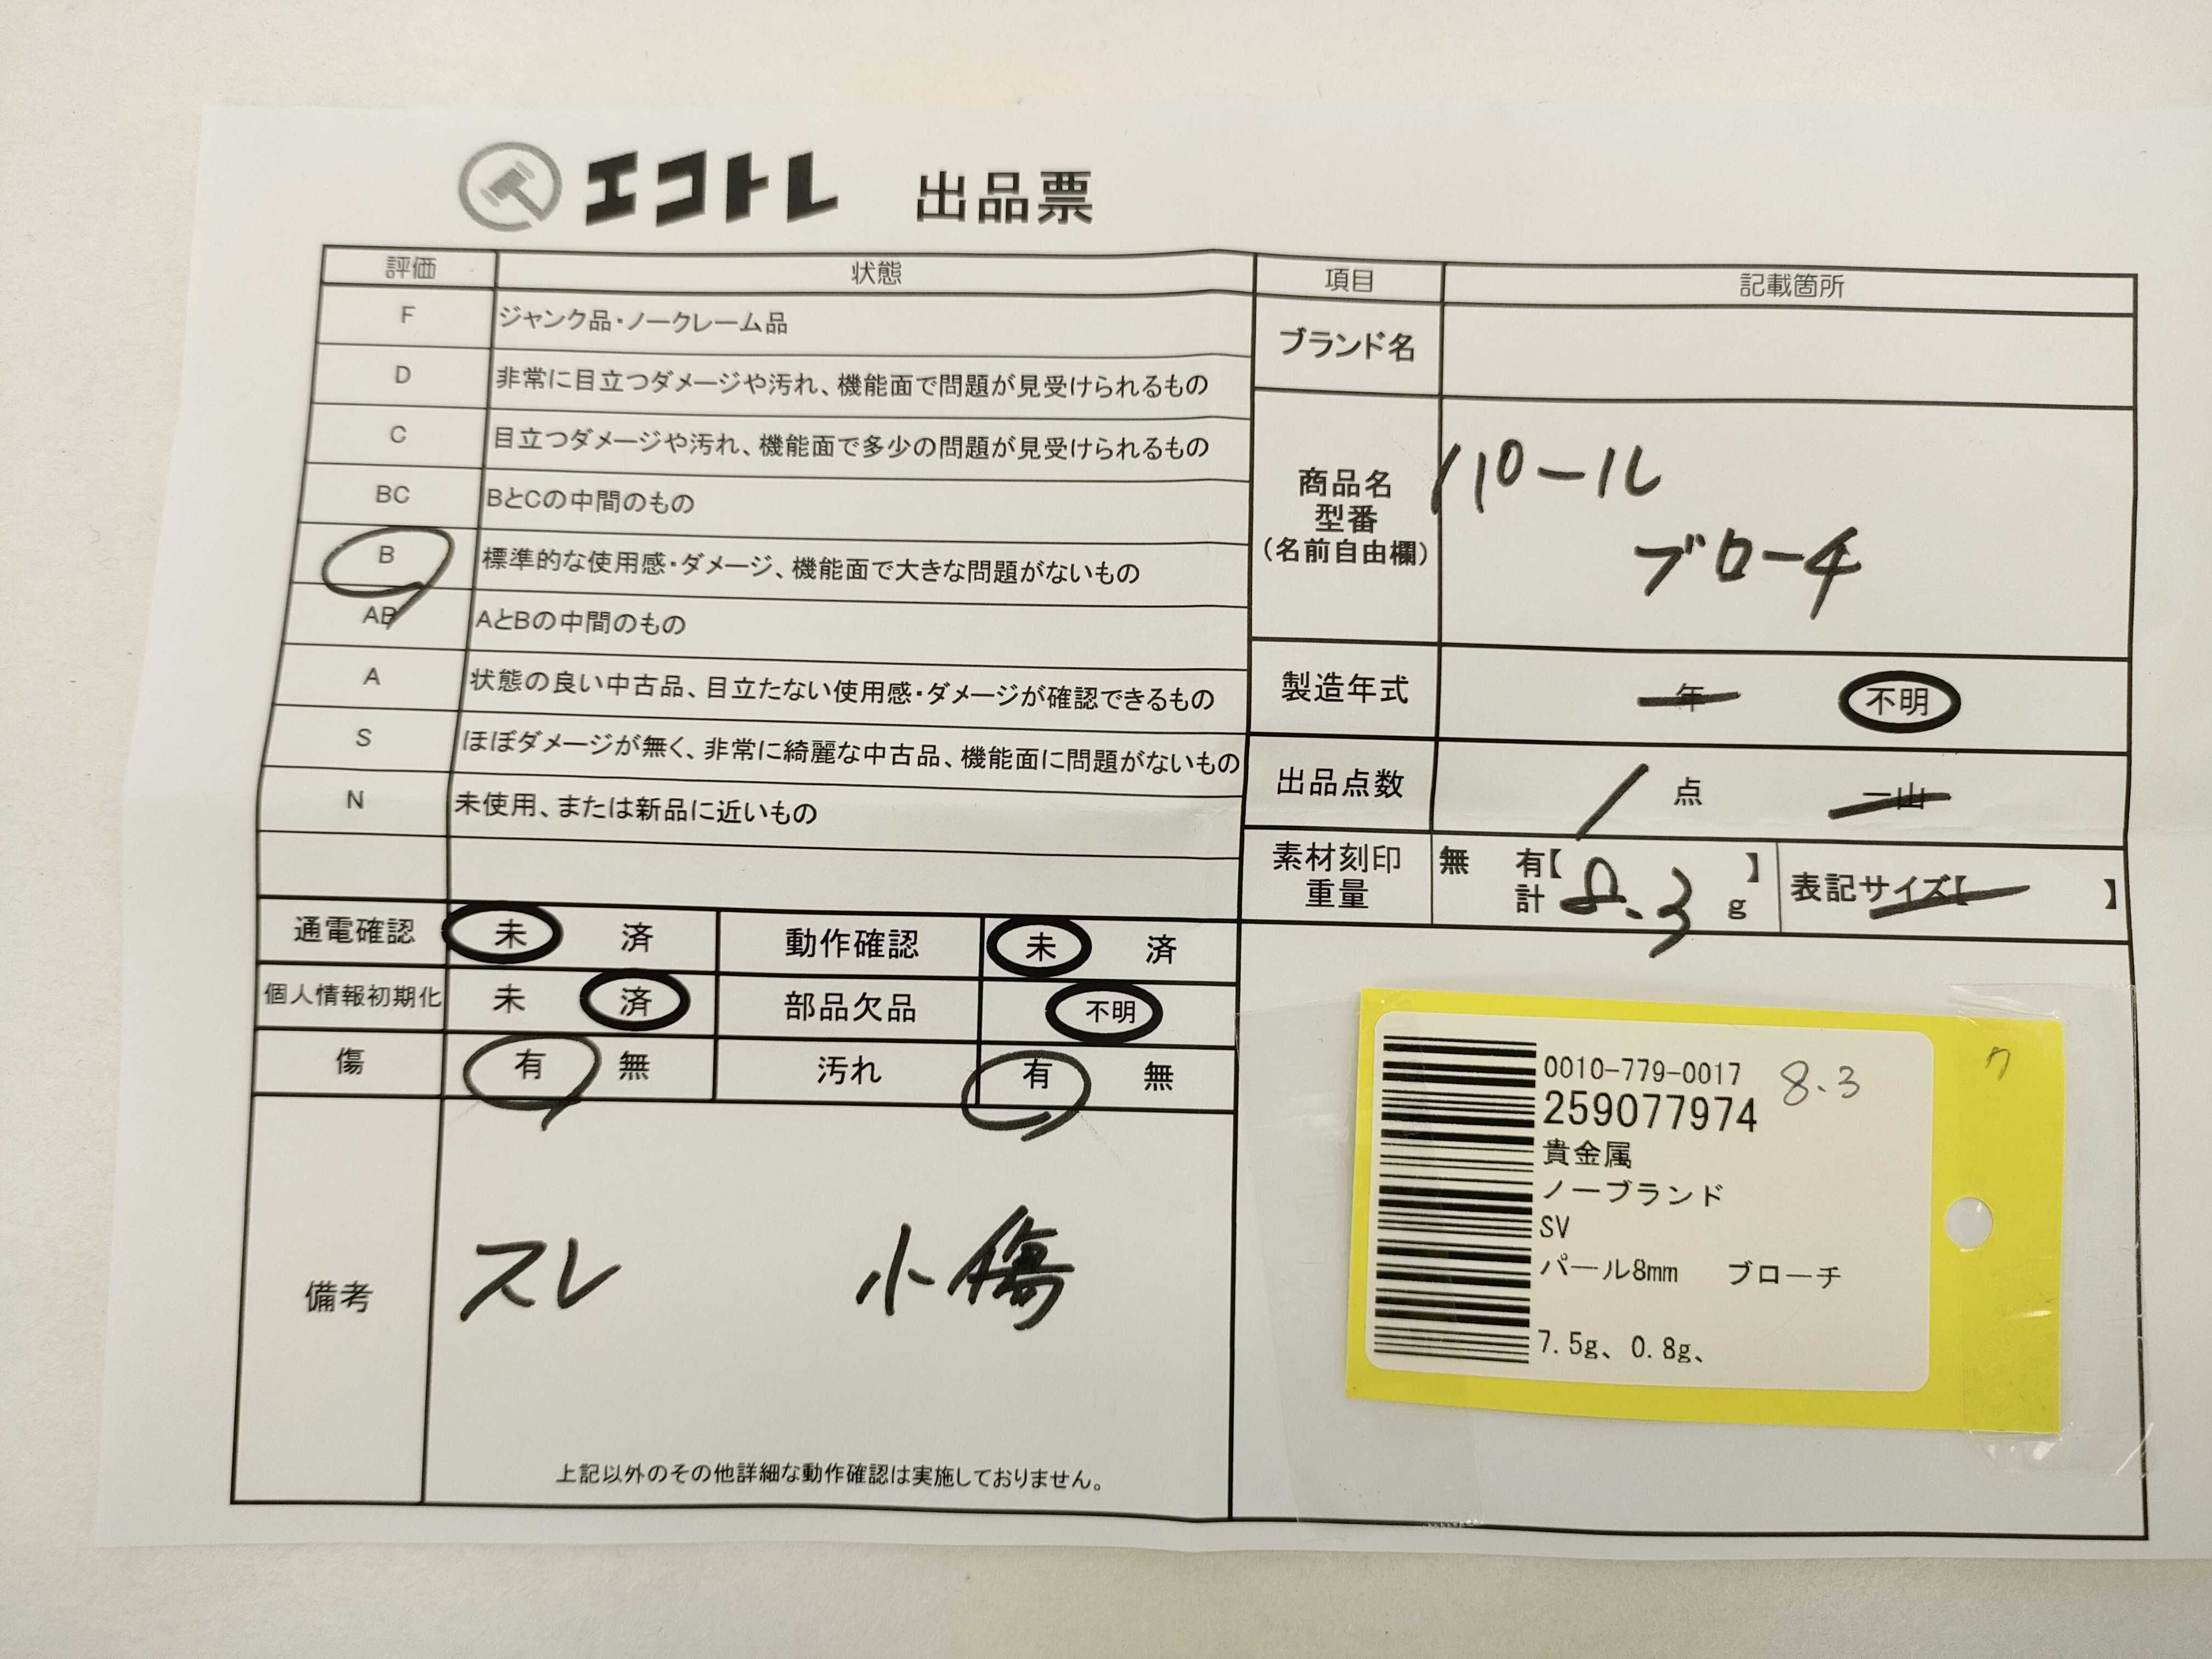 エコトレ 出品票
評価 状態
F ジャンク品・ノークレーム品
D 非常に目立つダメージや汚れ、機能面で問題が見受けられるもの
C 目立つダメージや汚れ、機能面で多少の問題が見受けられるもの
BC BとCの中間のもの
B 標準的な使用感・ダメージ、機能面で大きな問題がないもの
AB AとBの中間のもの
A 状態の良い中古品、目立たない使用感・ダメージが確認できるもの
S ほぼダメージが無く、非常に綺麗な中古品、機能面に問題がないもの
N 未使用、または新品に近いもの
通電確認 未 済 動作確認 未 済
個人情報初期化 未 済 部品欠品 不明
傷 有 無 汚れ 有 無
備考
スレ 小傷
上記以外のその他詳細な動作確認は実施しておりません。
項目 記載箇所
ブランド名
商品名
型番
(名前自由欄)
パール
ブローチ
製造年式 年 不明
出品点数 1 点 一山
素材刻印 無 有【 】
重量 計 8.3 g
表記サイズ【 】
0010-779-0017 8.3
259077974
貴金属
ノーブランド
SV
パール8mm ブローチ
7.5g、0.8g、